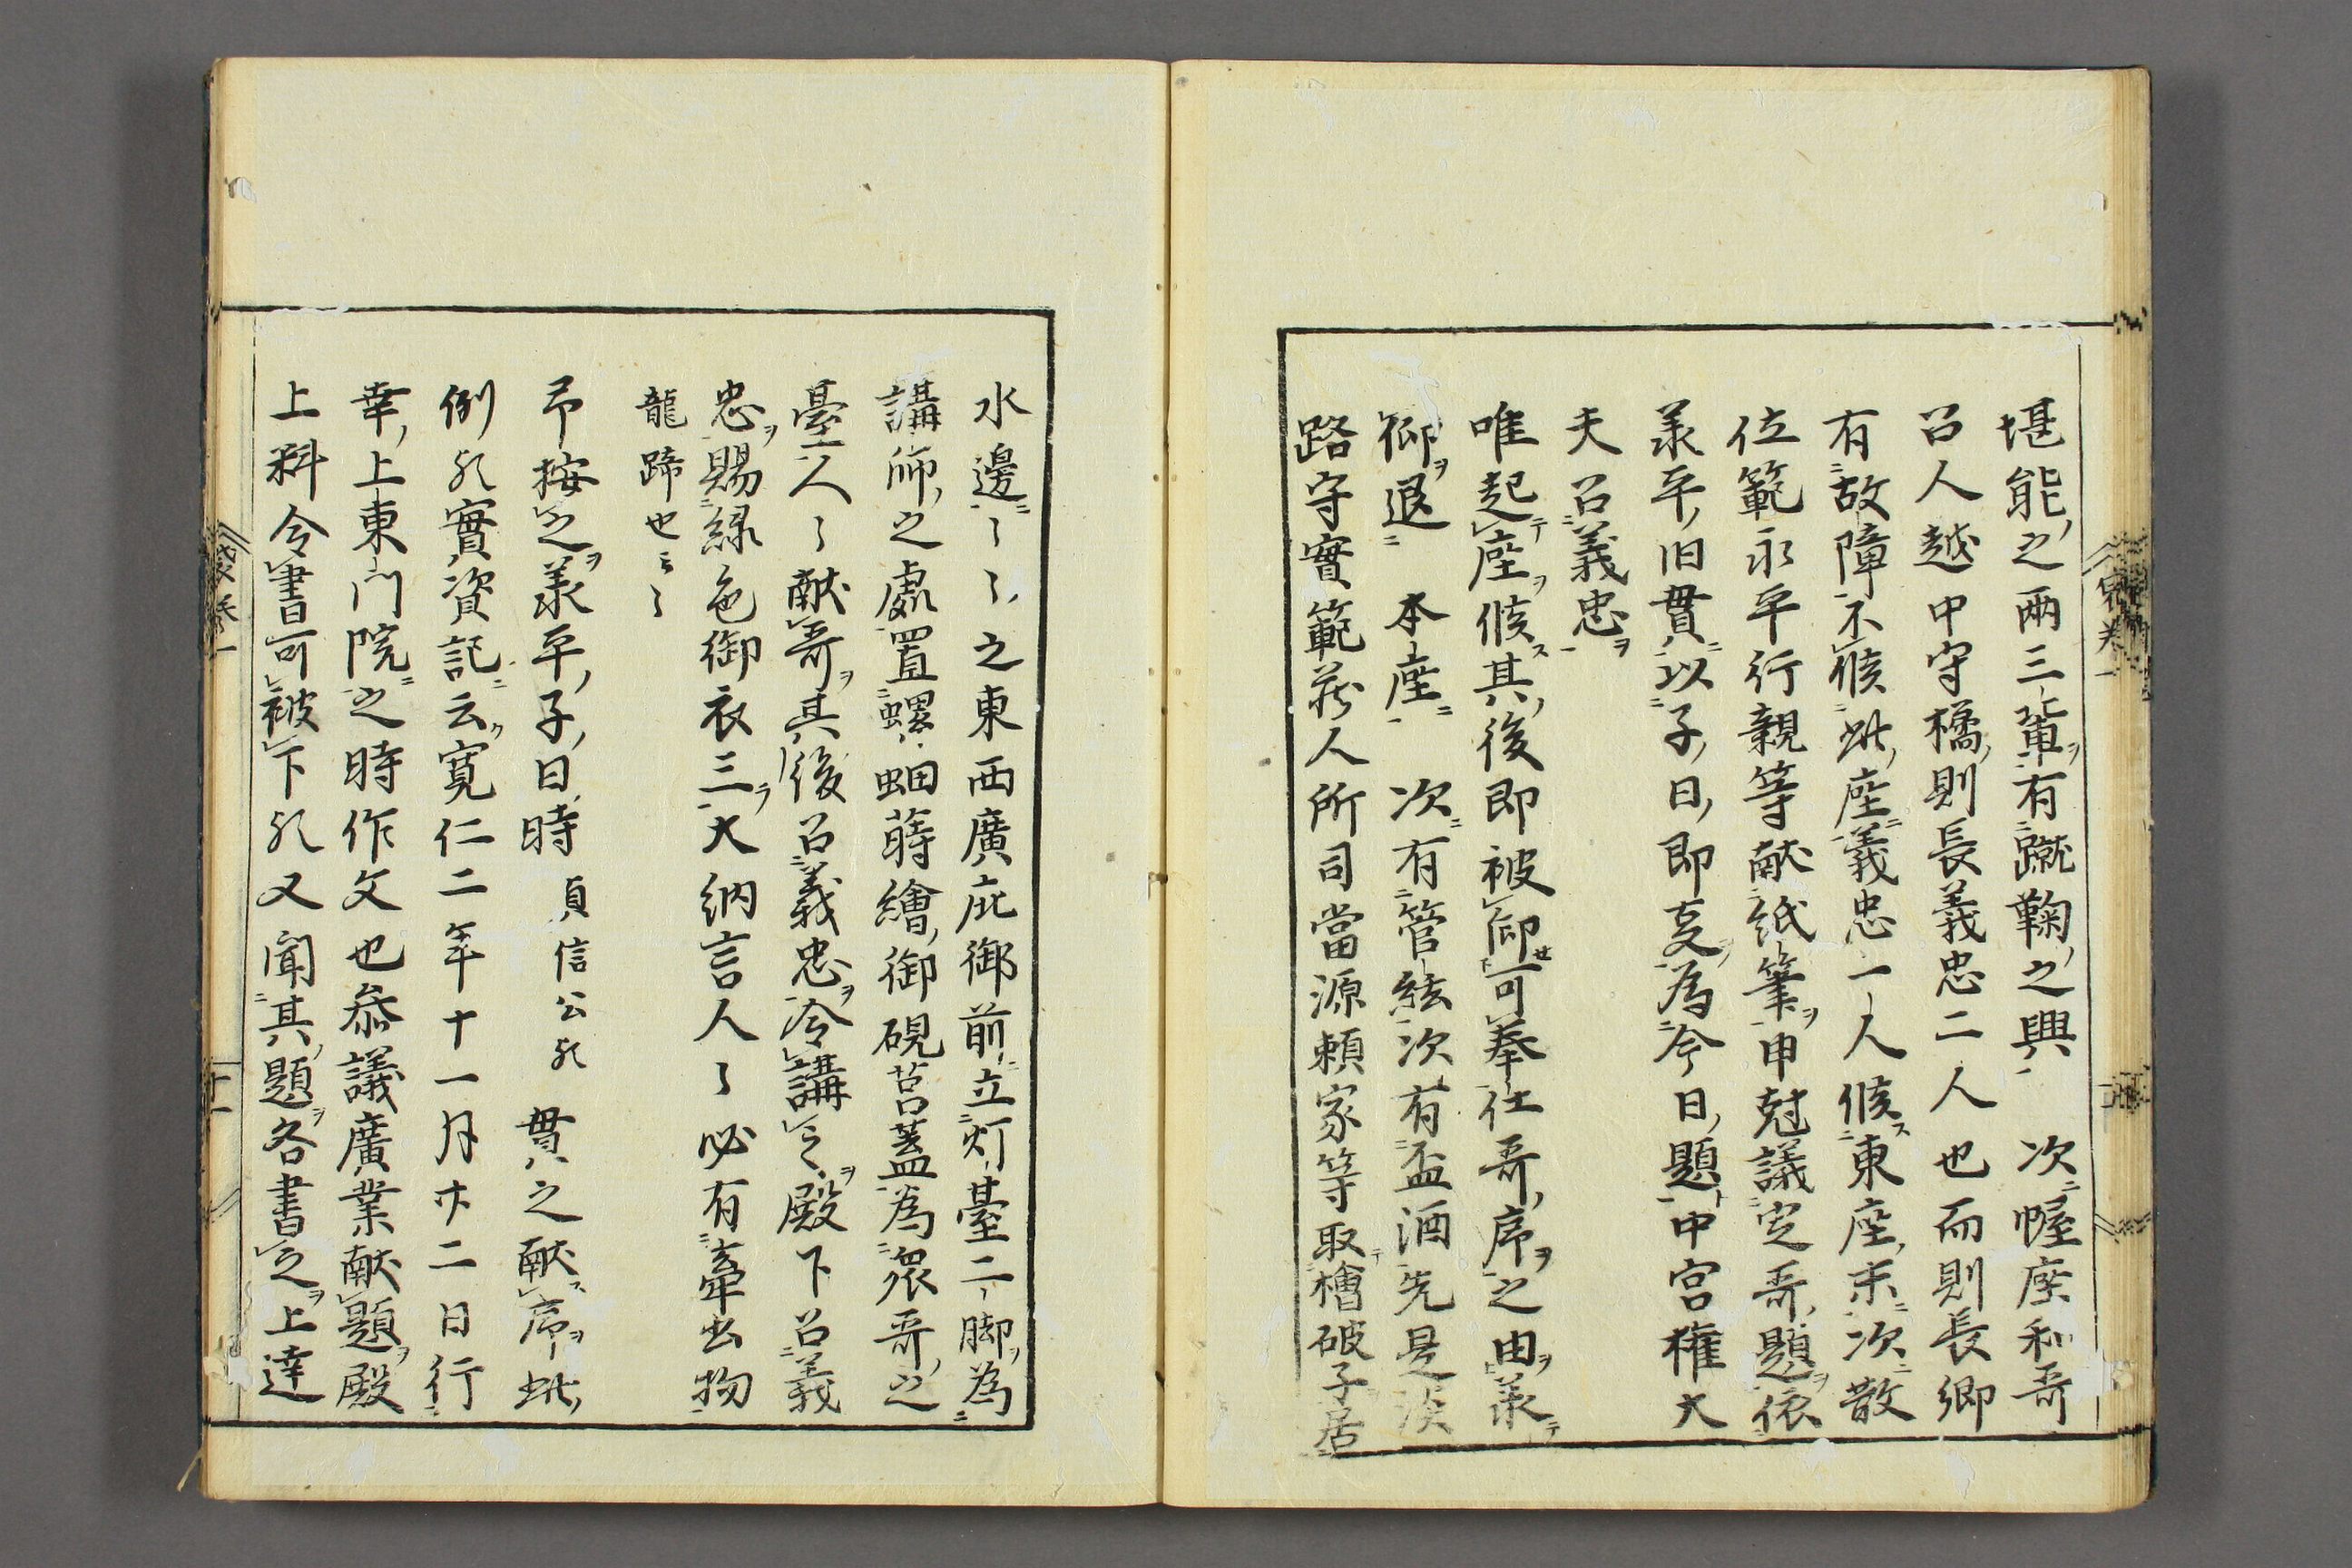 堪能之兩三輩有蹴鞠之興次幄座和哥
召人越中守橘則長義忠二人也而則長卿
有故障不候此座義忠一人候東座末次散
位範永平行親等献紙筆申尅議定哥題依
承平旧貫以子日即叓為今日題中宮權大
夫召義忠
唯起座候其後即被仰可奉仕哥序之由承
仰退本座次有管絃次有盃酒先是淡
路守實範蔵人所司當源頼家等取檜破子居
水邊〻〻之東西廣庇御前立灯臺二脚為
講師之處置螺鈿蒔繪御硯莒蓋為衆哥之
臺人〻献哥其後召義忠令講之殿下召義
忠賜緑色御衣三大納言人〻必有牽出物
龍蹄也云〻
予按之承平子日時貞信公歟貫之献序此
例歟實資記云寛仁二年十一月廿二日行
幸上東門院之時作文也叅議廣業献題殿
上料令書可被下歟又聞其題各書之上達